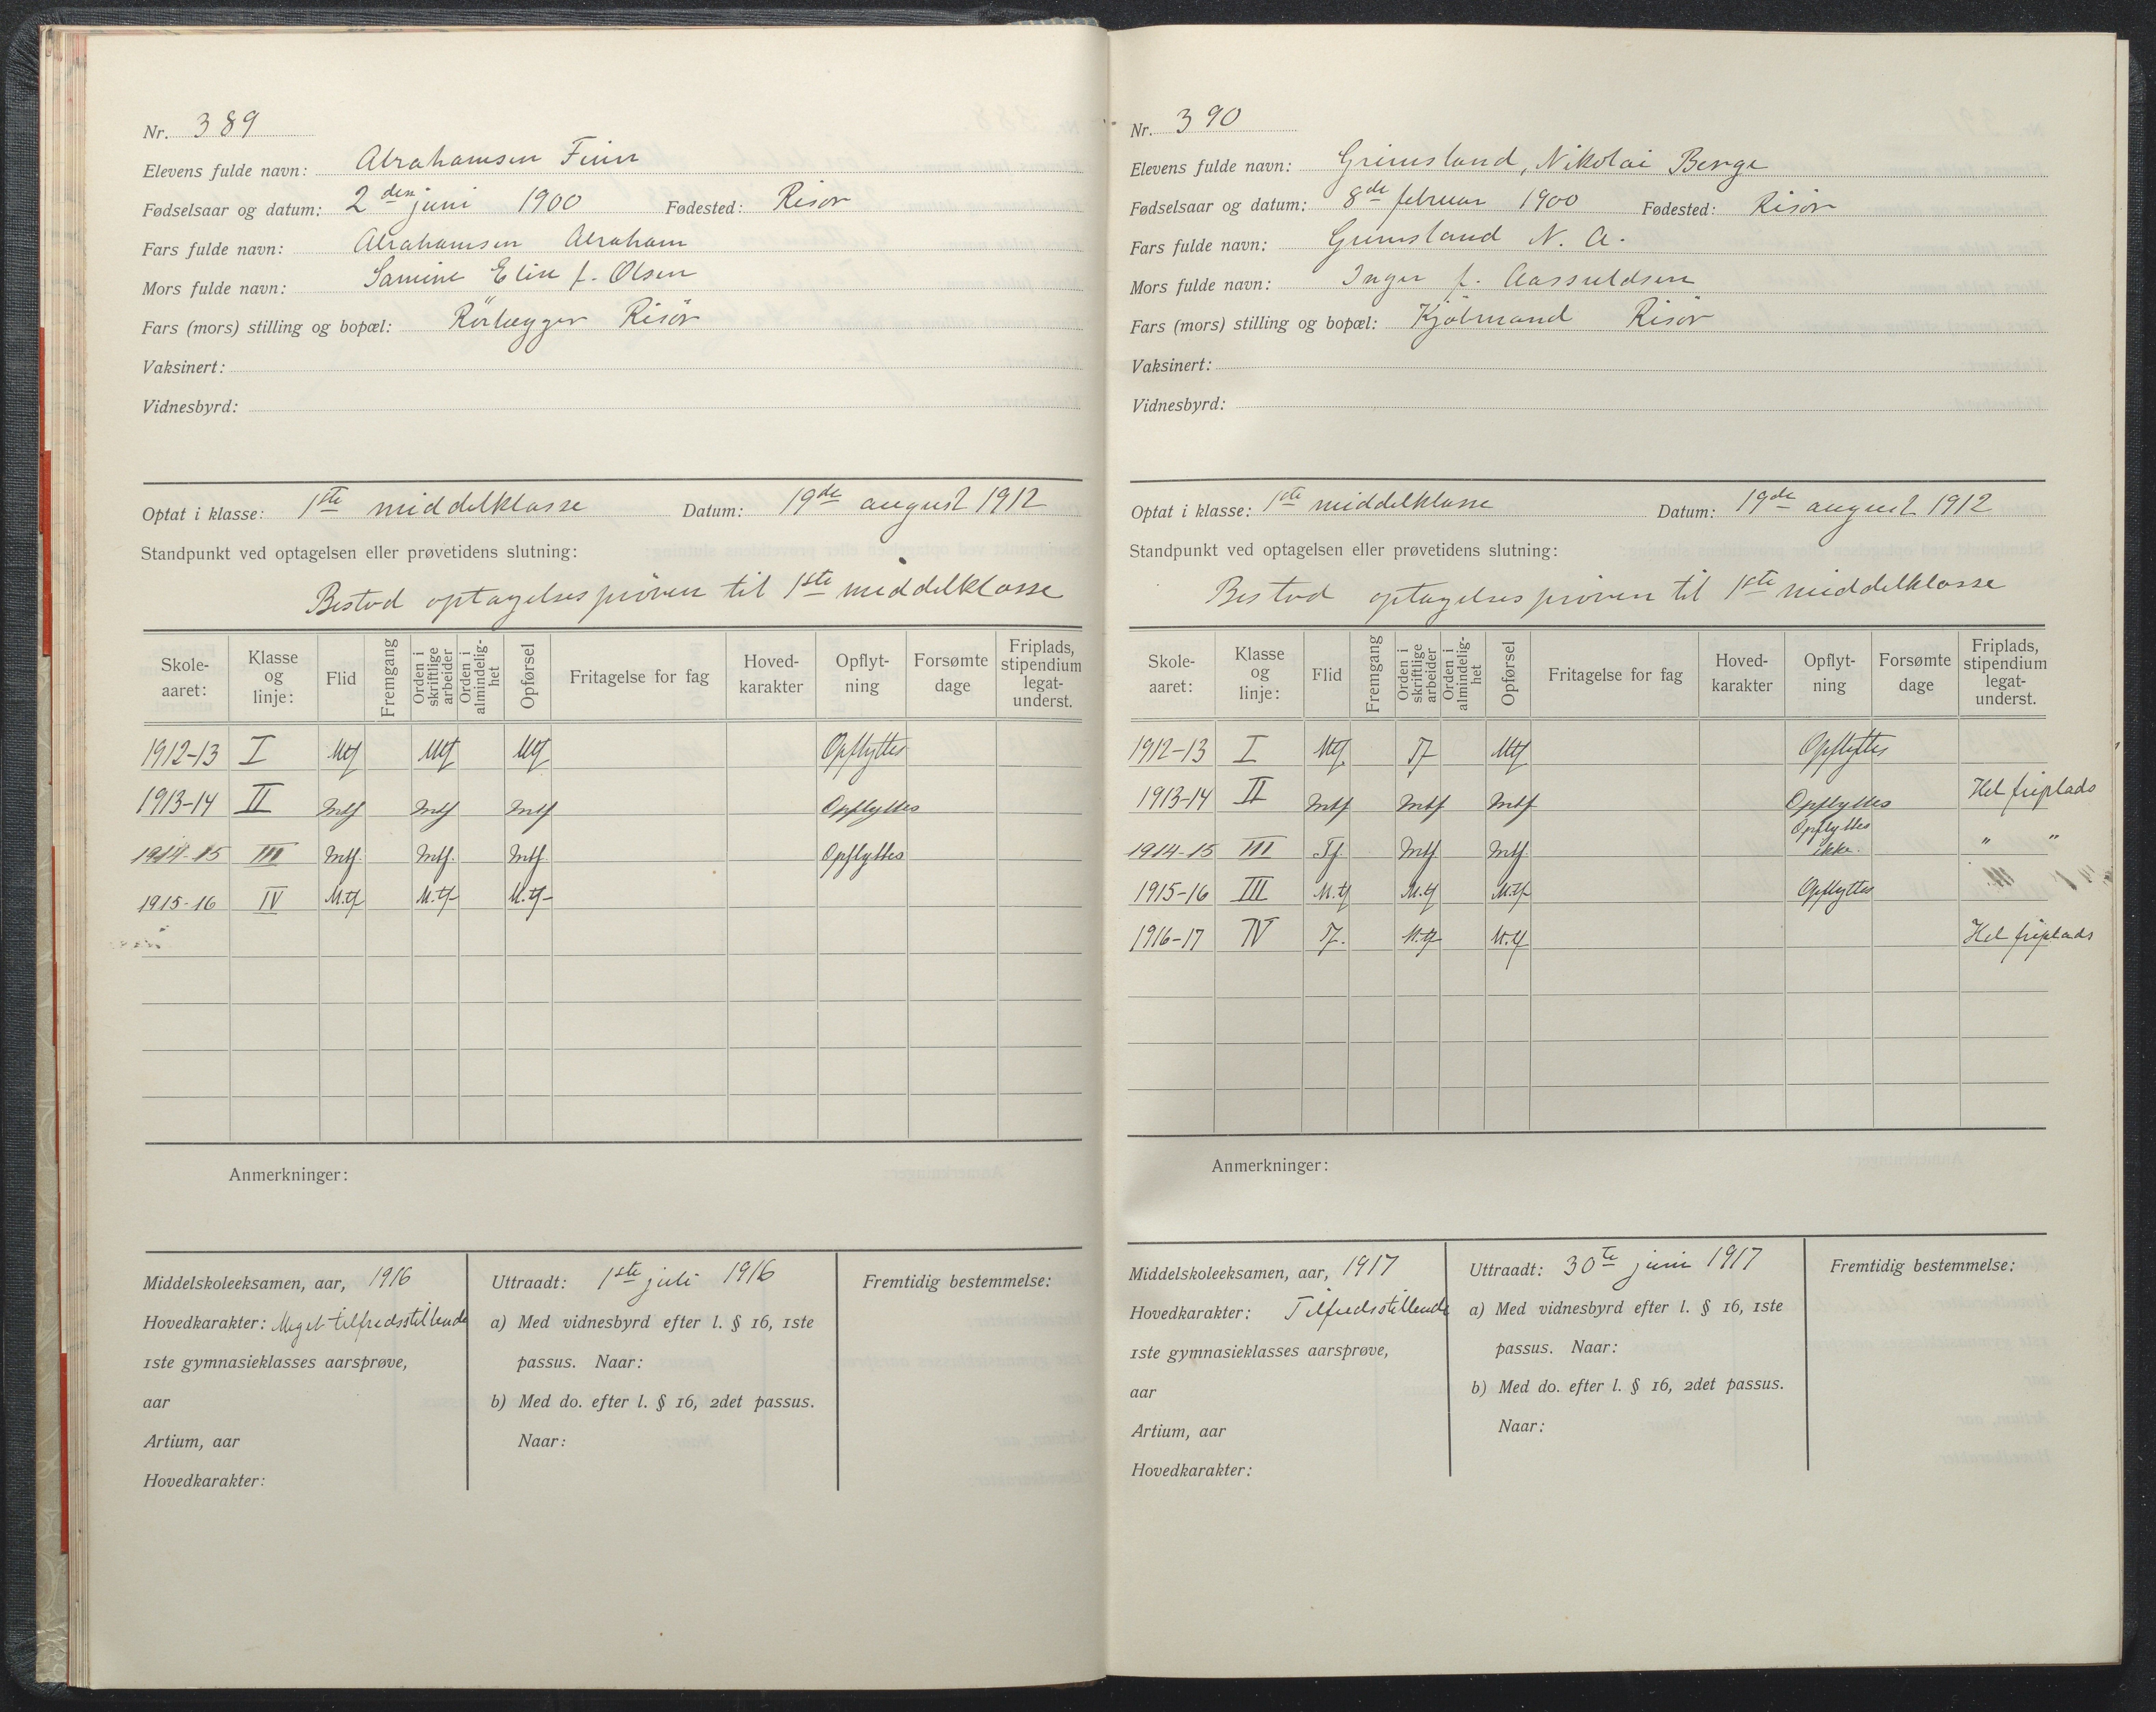 Nr. 389
Elevens fulde navn: Abrahamsen Finn
Fødselsaar og datum: 2den juni 1900 Fødested: Risør
Fars fulde navn: Abrahamsen Abraham
Mors fulde navn: Samine Elise f. Olsen
Fars (mors) stilling og bopæl: Rörlægger Risör
Vaksinert:
Vidnesbyrd:
Optat i klasse: 1ste middelklasse Datum: 19de august 1912
Standpunkt ved optagelsen eller prøvetidens slutning:
Bestod optagelsespröven til 1ste middelklasse
Skole-aaret: Klasse og linje: Flid Fremgang Orden i skriftlige arbeider Orden i almindelig-het Opførsel Fritagelse for fag Hoved-karakter Opflyt-ning Forsømte dage Friplads, stipendium legat-underst.
1912-13 I Mtf Mtf Mtf Opflyttes
1913-14 II Mtf Mtf Mtf Opflyttes
1914-15 III Mtf. Mtf. Mtf. Opflyttes
1915-16 IV M.tf M.tf M.tf
Anmerkninger:
Middelskoleeksamen, aar, 1916
Hovedkarakter: Meget tilfredsstillende
1ste gymnasieklasses aarsprøve,
aar
Artium, aar
Hovedkarakter:
Uttraadt: 1ste juli 1916
a) Med vidnesbyrd efter l. § 16, 1ste
passus. Naar:
b) Med do. efter l. § 16, 2det passus.
Naar:
Fremtidig bestemmelse:
Nr. 390
Elevens fulde navn: Grimsland, Nikolai Berge
Fødselsaar og datum: 8de februar 1900 Fødested: Risör
Fars fulde navn: Grimsland N. A.
Mors fulde navn: Inger f. Aassuldsen
Fars (mors) stilling og bopæl: Kjöbmand Risör
Vaksinert:
Vidnesbyrd:
Optat i klasse: 1ste middelklasse Datum: 19de august 1912
Standpunkt ved optagelsen eller prøvetidens slutning:
Bestod optagelsespröven til 1ste middelklasse
Skole-aaret: Klasse og linje: Flid Fremgang Orden i skriftlige arbeider Orden i almindelig-het Opførsel Fritagelse for fag Hoved-karakter Opflyt-ning Forsømte dage Friplads, stipendium legat-underst.
1912-13 I Mtf. Tf Mtf Opflyttes
1913-14 II Mtf Mtf Mtf Opflyttes Hel friplads
1914-15 III Tf. Mtf Mtf. Opflyttes ikke. " "
1915-16 III M.tf M.tf M.tf Opflyttes
1916-17 IV Tf. M.tf M.tf Hel friplads
Anmerkninger:
Middelskoleeksamen, aar, 1917
Hovedkarakter: Tilfredsstillende
1ste gymnasieklasses aarsprøve,
aar
Artium, aar
Hovedkarakter:
Uttraadt: 30te juni 1917
a) Med vidnesbyrd efter l. § 16, 1ste
passus. Naar:
b) Med do. efter l. § 16, 2det passus.
Naar:
Fremtidig bestemmelse: